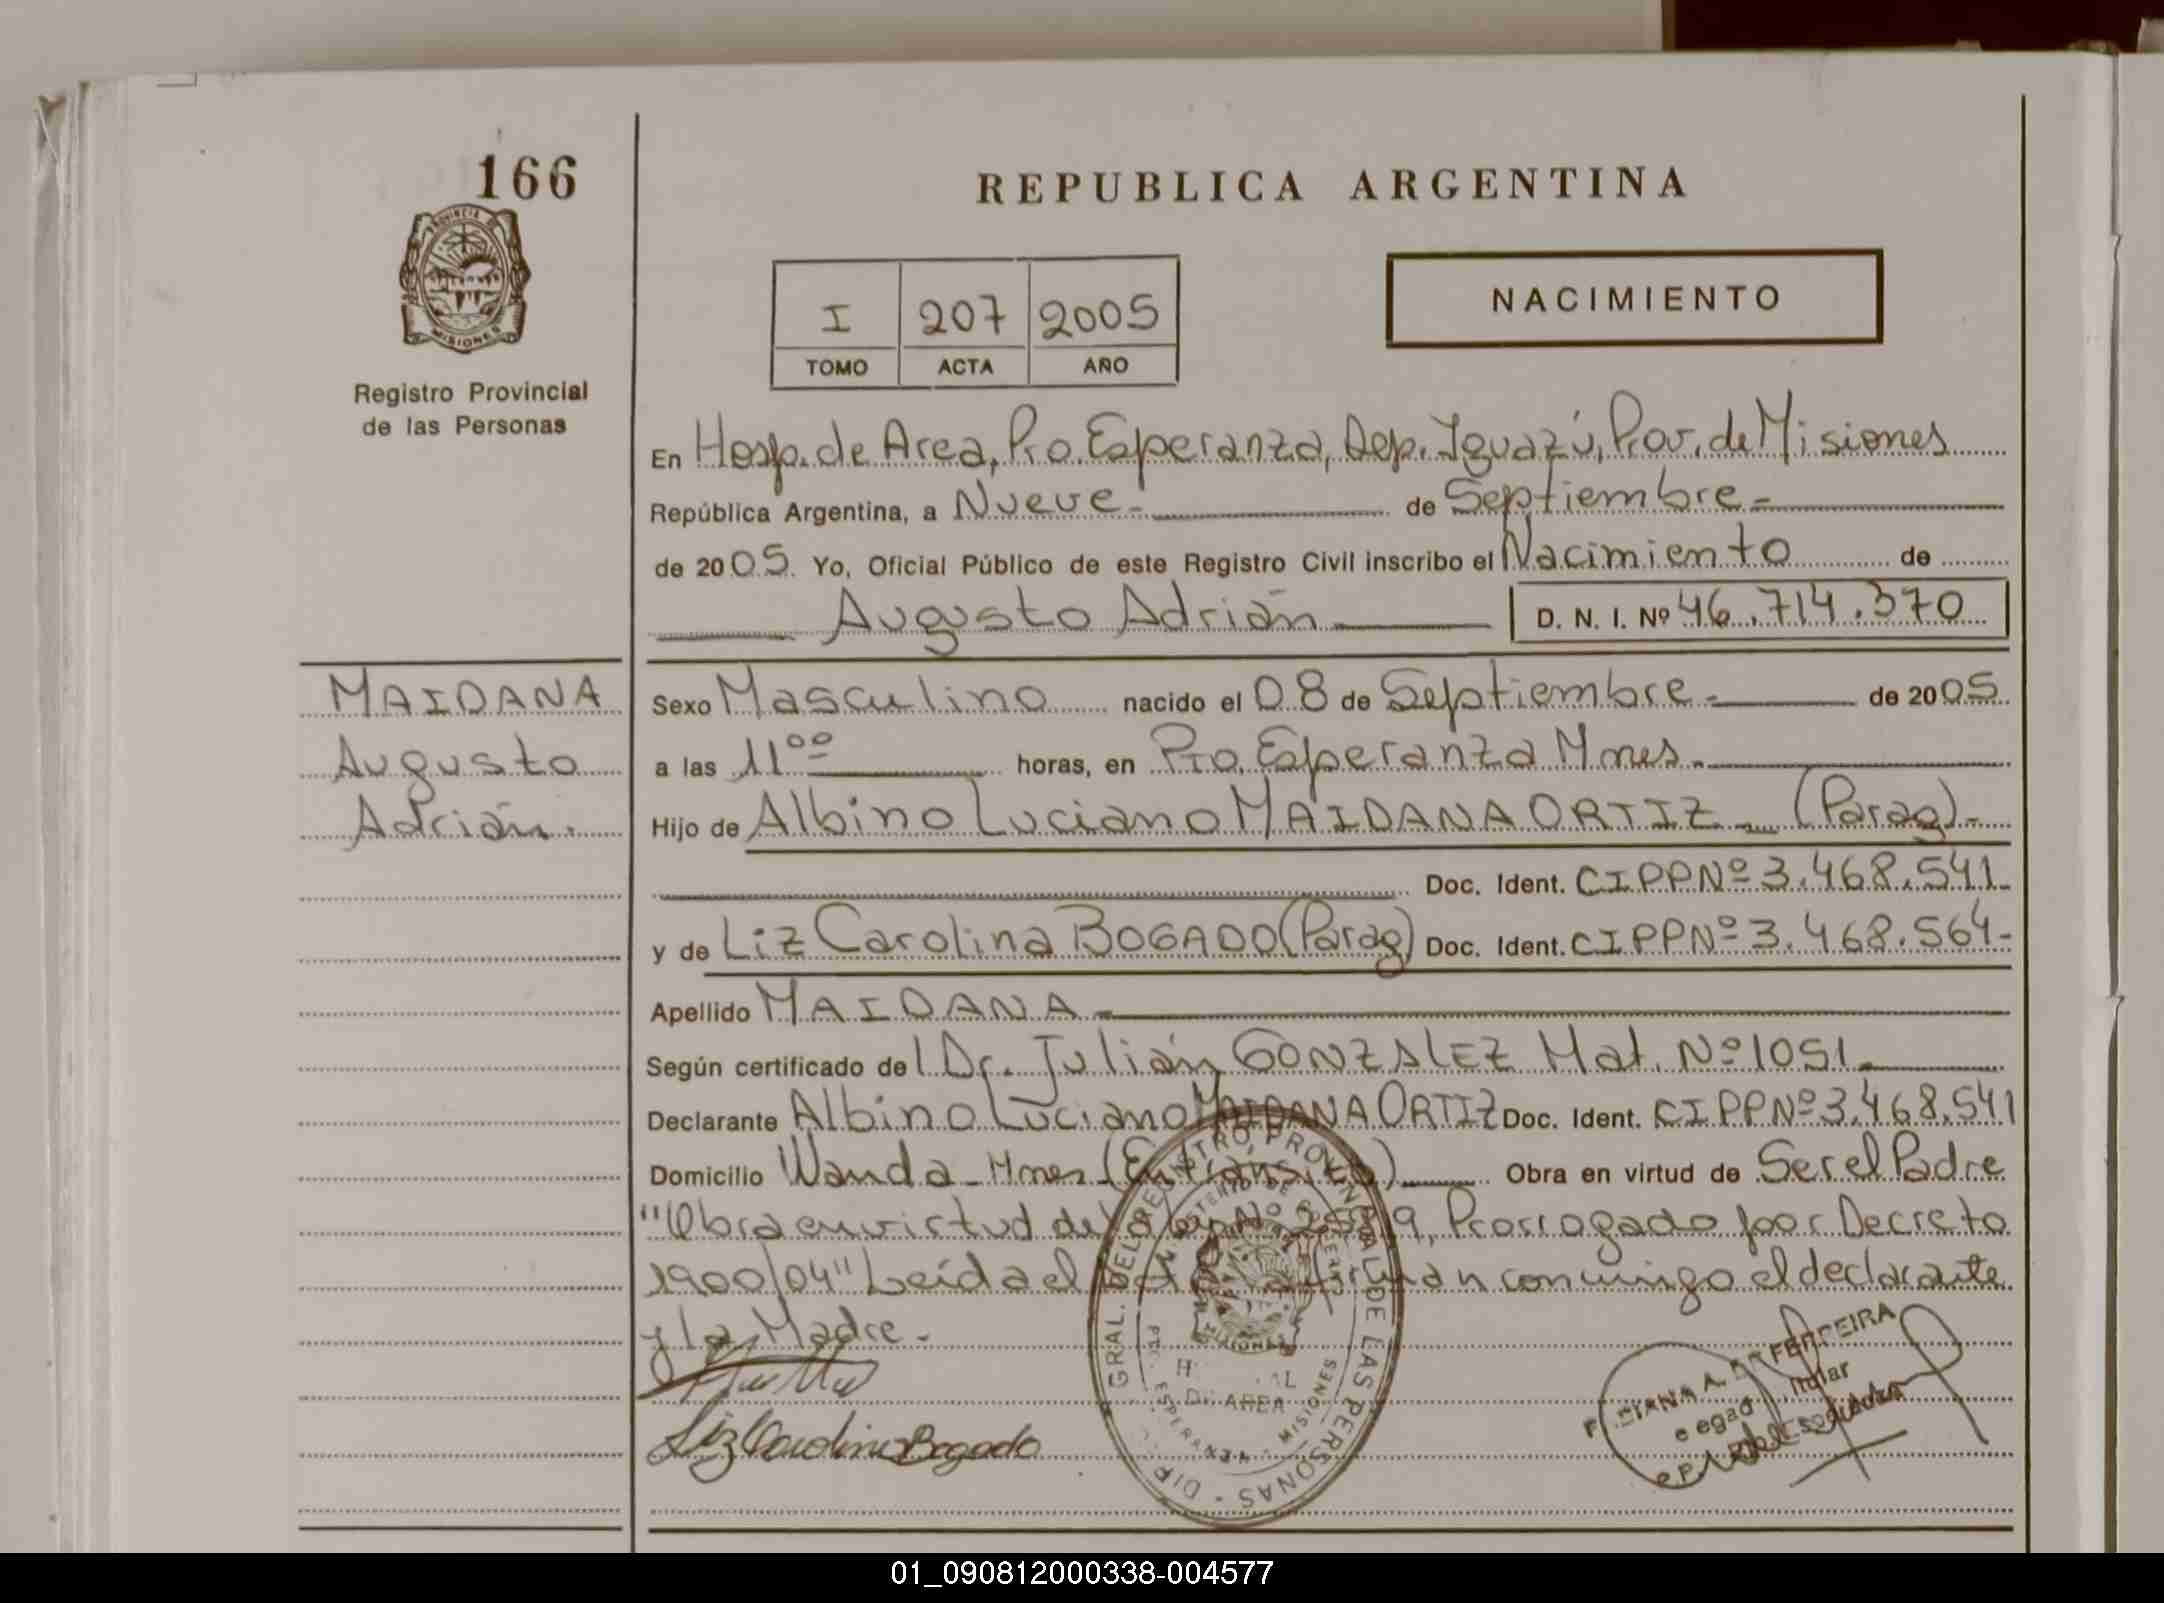 166
PROVINCIA DE
MISIONES
Registro Provincial
de las Personas
REPUBLICA ARGENTINA
I 207 2005
TOMO ACTA AÑO
NACIMIENTO
En Hosp. de Area, Pto. Esperanza, Dep. Iguazú, Prov. de Misiones
República Argentina, a Nueve.- de Septiembre.-
de 2005. Yo, Oficial Público de este Registro Civil inscribo el Nacimiento de
Augusto Adrián D. N. I. Nº 46.714.370
MAIDANA
Augusto
Adrián.
Sexo Masculino nacido el 08 de Septiembre.- de 2005
a las 11ºº horas, en Pto. Esperanza Mnes.-
Hijo de Albino Luciano MAIDANA ORTIZ - (Parag).-
Doc. Ident. CIPPNº 3.468.541-
y de Liz Carolina BOGADO (Parag) Doc. Ident. CIPPNº 3.468.564-
Apellido MAIDANA.-
Según certificado de l Dr. Julián GONZALEZ Mat. Nº 1051.-
Declarante Albino Luciano MAIDANA ORTIZ Doc. Ident. CIPPNº 3.468.541
Domicilio Wanda - Mnes (En transito) Obra en virtud de Ser el Padre
"Obra en virtud de la Ley Nº 9, Prorrogado por Decreto
1900/04" Leída el firman conmigo el declarante
y La Madre.-
Liz Carolina Bogado
DIR. GRAL. DEL REGISTRO PROVINCIAL DE LAS PERSONAS
MINISTERIO DE GOBIERNO
MISIONES
DE AREA
ESPERANZA - MISIONES
A. DE FERREIRA
01_090812000338-004577